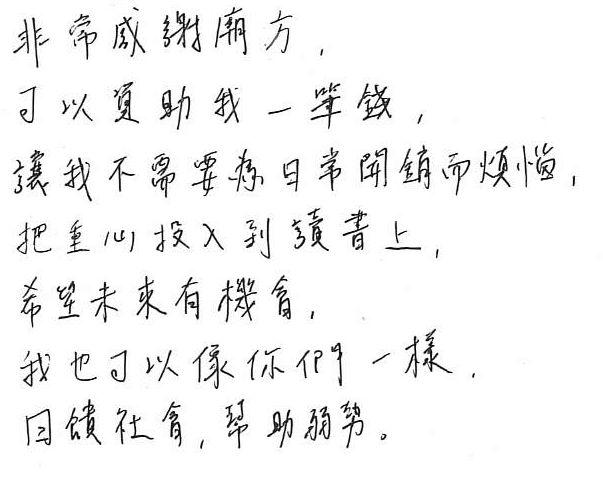 非常感謝廟方,
可以資助我一筆錢,
讓我不需要為日常開銷而煩惱,
把重心投入到讀書上,
希望未來有機會,
我也可以像你們一樣,
回饋社會,幫助弱勢。